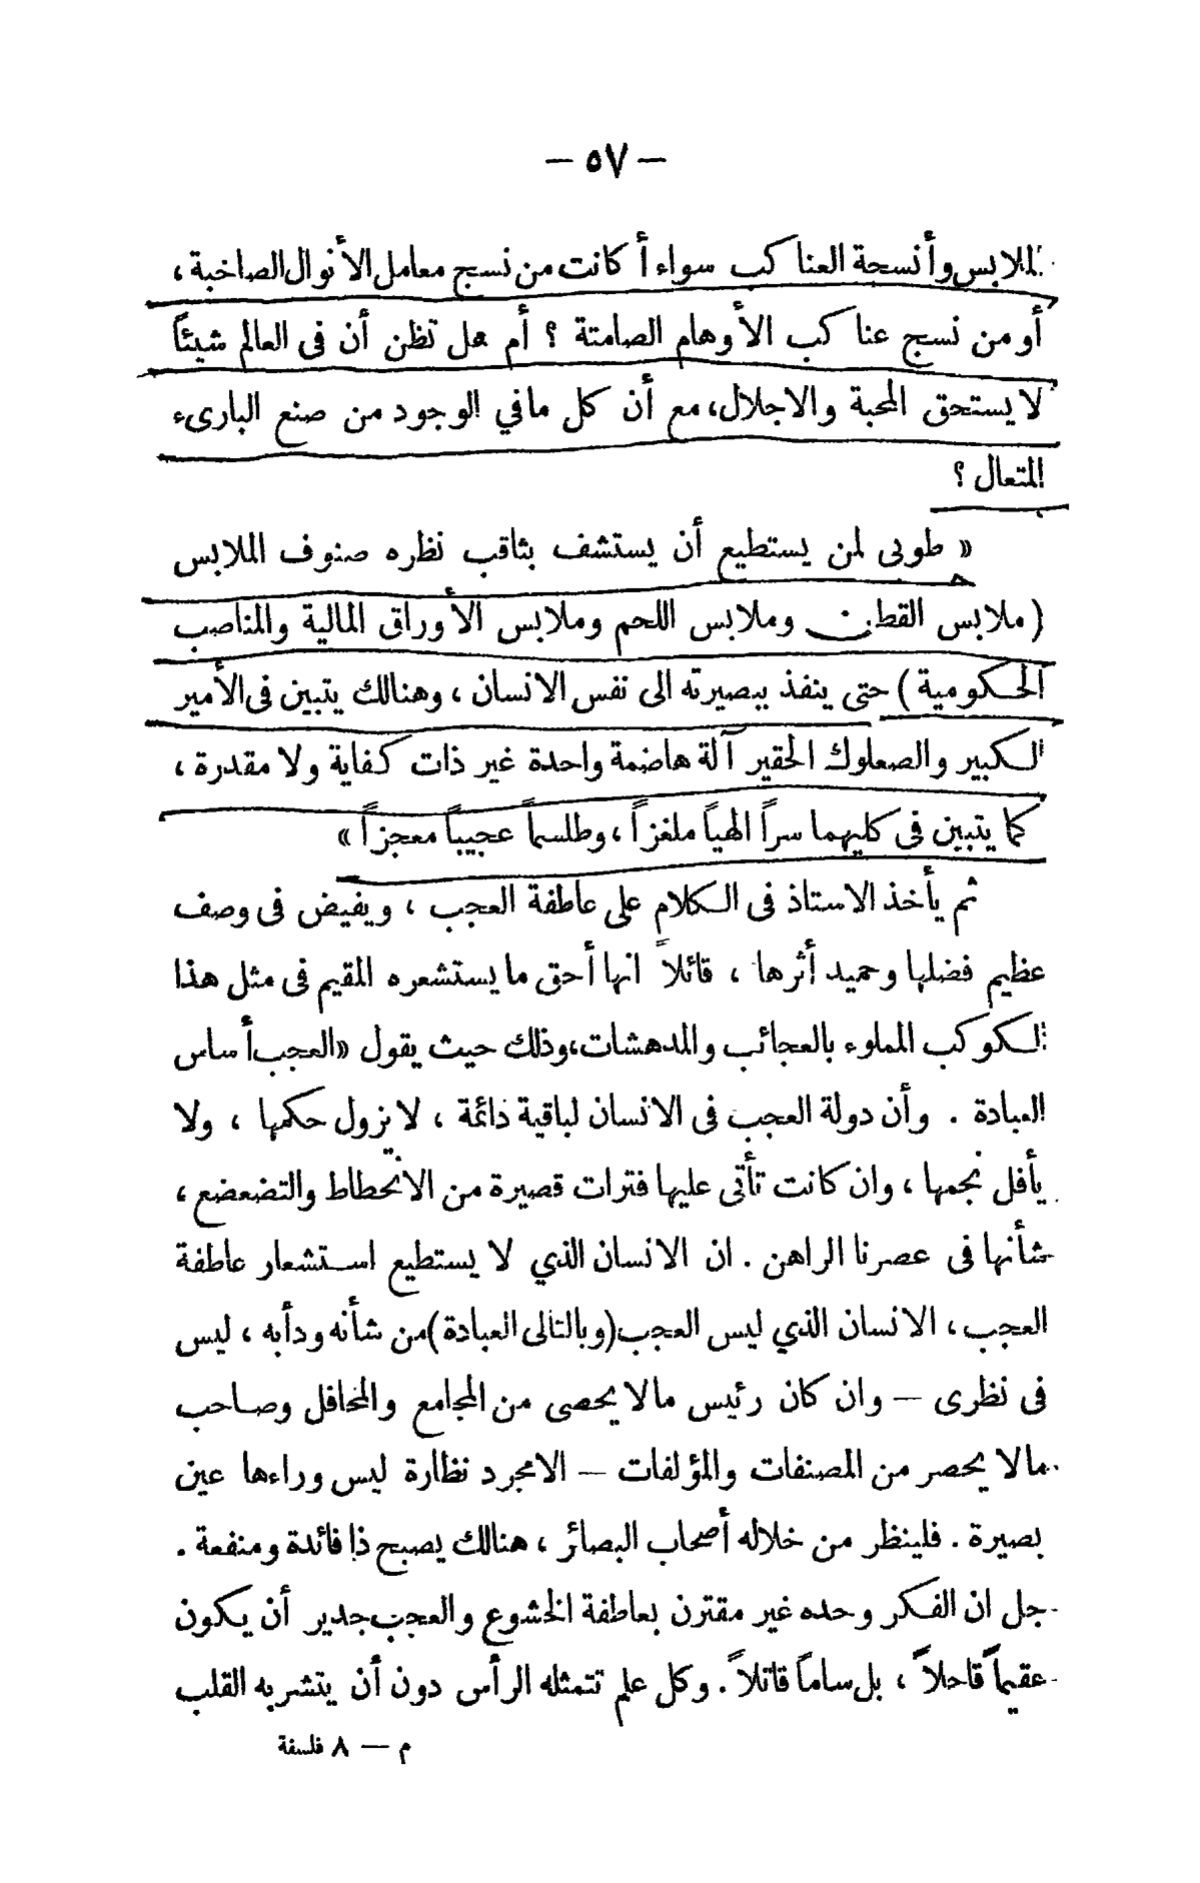 — ٥٧ —
الملابس وأنسجة العناكب سواء أكانت من نسج معامل الأنوال الصاخبة ،
أو من نسج عناكب الأوهام الصامتة ؟ أم هل تظن أن فى العالم شيئاً
لا يستحق المحبة والاجلال، مع أن كل مافي الوجود من صنع البارىء
المتعال ؟
« طوبى لمن يستطيع أن يستشف بثاقب نظره صنوف الملابس
( ملابس القطن وملابس اللحم وملابس الأوراق المالية والمناصب
الحكومية ) حتى ينفذ ببصيرته الى نفس الانسان ، وهنالك يتبين فى الأمير
الكبير والصعلوك الحقير آلة هاضمة واحدة غير ذات كفاية ولا مقدرة ،
كما يتبين فى كليهما سراً الهياً ملغزاً ، وطلسماً عجيباً معجزاً »
ثم يأخذ الاستاذ فى الكلام على عاطفة العجب ، ويفيض فى وصف
عظيم فضلها وحميد أثرها ، قائلاً انها أحق ما يستشعره المقيم فى مثل هذا
الكوكب المملوء بالعجائب والمدهشات، وذلك حيث يقول « العجب أساس
العبادة . وأن دولة العجب فى الانسان لباقية دائمة ، لا يزول حكمها ، ولا
يأفل نجمها ، وان كانت تأتى عليها فترات قصيرة من الانحطاط والتضعضع ،
شأنها فى عصرنا الراهن . ان الانسان الذي لا يستطيع استشعار عاطفة
العجب ، الانسان الذي ليس العجب (وبالتالى العبادة) من شأنه ودأبه ، ليس
فى نظرى — وان كان رئيس مالا يحصى من المجامع والمحافل وصاحب
مالا يحصر من المصنفات والمؤلفات — الا مجرد نظارة ليس وراءها عين
بصيرة . فلينظر من خلاله أصحاب البصائر ، هنالك يصبح ذا فائدة ومنفعة .
جل ان الفكر وحده غير مقترن بعاطفة الخشوع والعجب جدير أن يكون
عقيماً قاحلاً ، بل ساماً قاتلاً . وكل علم تتمثله الرأس دون أن يتشربه القلب
م — ٨ فلسفة